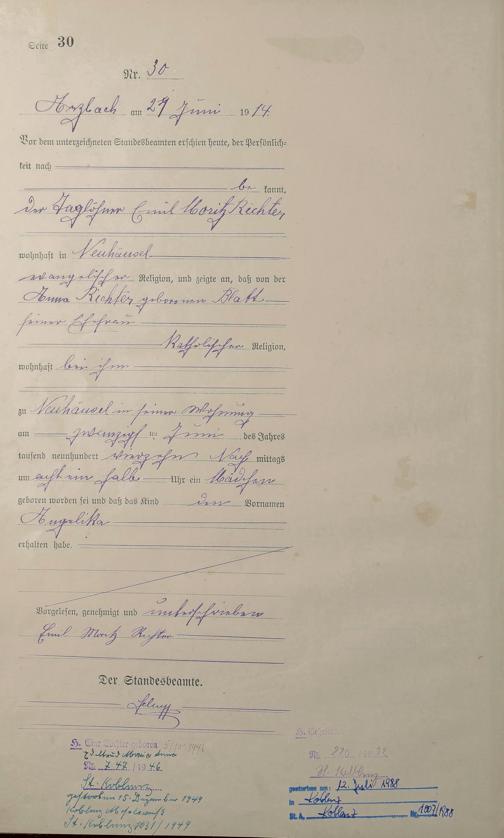 Seite 30
Nr. 30
Arzbach am 27 Juni 1914.
Vor dem unterzeichneten Standesbeamten erschien heute, der Persönlich-
keit nach
be kannt,
der Taglöhner Emil Moritz Richter,
wohnhaft in Neuhäusel
evangelischer Religion, und zeigte an, daß von der
Anna Richter geborenen Blatt
seiner Ehefrau
katholischer Religion,
wohnhaft bei ihm
zu Neuhäusel in seiner Wohnung
am zwanzigst ten Juni des Jahres
tausend neunhundert vierzehn Nach mittags
um acht ein halb Uhr ein Mädchen
geboren worden sei und daß das Kind den Vornamen
Angelika
erhalten habe.
Vorgelesen, genehmigt und unterschrieben
Emil Moritz Richter
Der Standesbeamte.
Tochter geboren
Maria Anna
Nr. 748/1946
St. Koblenz
gestorben 15. Dezember 1949
Koblenz
St. Koblenz 1031/1949
Nr.
gestorben am: 12. Juli 1988
in Koblenz
St. A. Koblenz Nr. 1007/1988